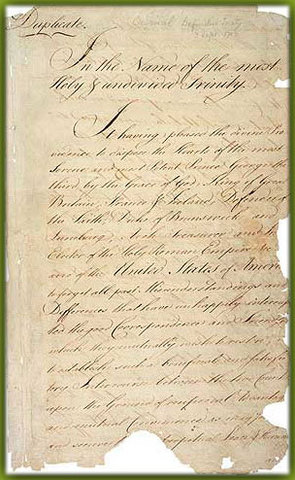 Duplicate.
Original Definitive Treaty
3 Sept. 1783
In the Name of the most
Holy & undivided Trinity.
It having pleased the divine Pro-
vidence to dispose the Hearts of the most
Serene and most Potent Prince George the
third, by the Grace of God, King of Great
Britain, France & Ireland, Defender of
the Faith, Duke of Brunswick and
Luneburg, Arch Treasurer and Prince
Elector of the Holy Roman Empire &c.
and of the United States of America
to forget all past Misunderstandings and
Differences that have unhappily interrup-
ted the good Correspondence and Friendship
which they mutually wish to restore
to establish such a beneficial and satisfac-
tory Intercourse between the two Countries
upon the Ground of reciprocal Advantages
and mutual Convenience as may
and secure to both perpetual Peace & Harmony